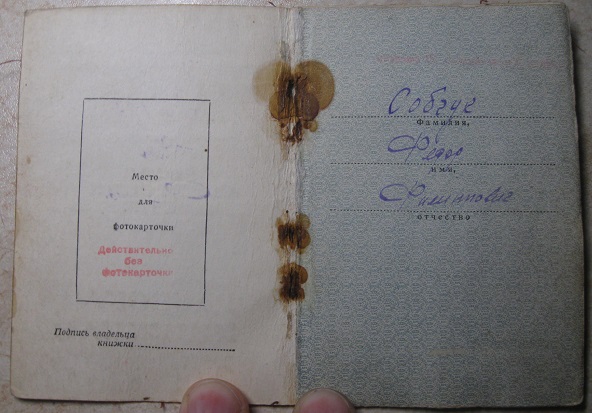 Место
для
фотокарточки
Действительно
без
фотокарточки
Подпись владельца
книжки
Собчук
Фамилия,
имя,
Филиппович
отчество